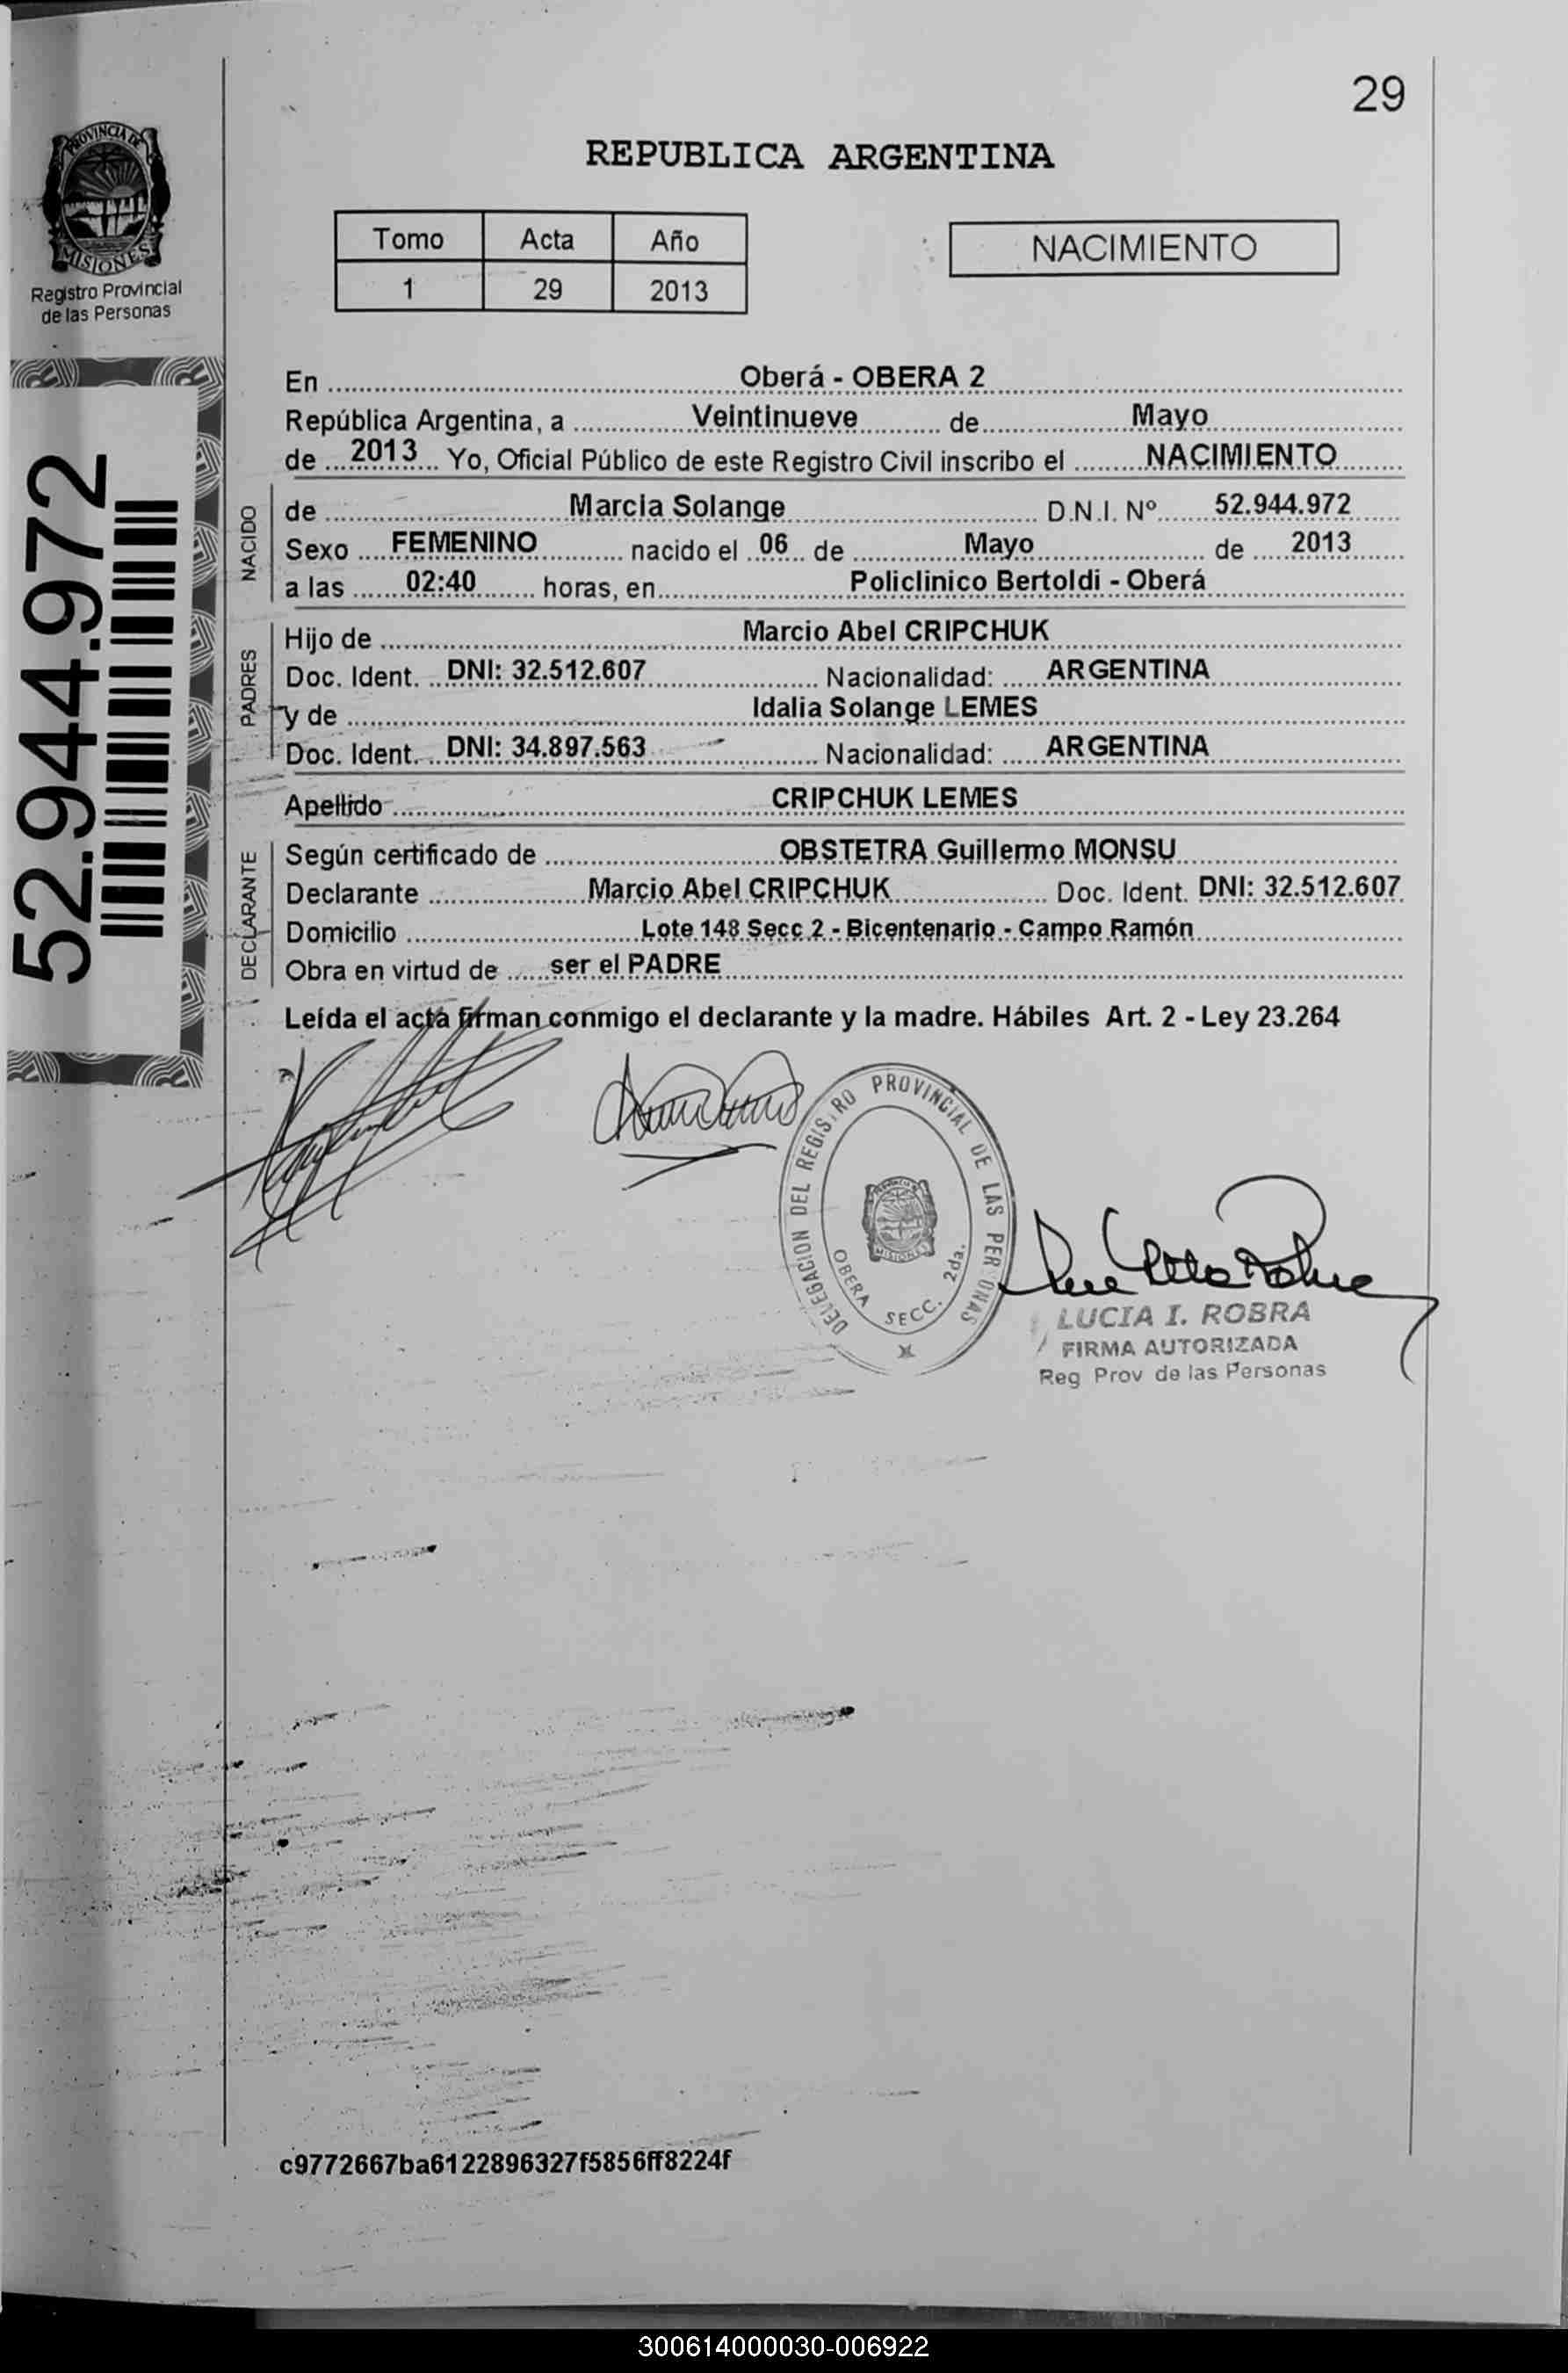 29
PROVINCIA DE
MISIONES
Registro Provincial
de las Personas
REPUBLICA ARGENTINA
Tomo Acta Año
1 29 2013
NACIMIENTO
52.944.972
En Oberá - OBERA 2
República Argentina, a Veintinueve de Mayo
de 2013 Yo, Oficial Público de este Registro Civil inscribo el NACIMIENTO
NACIDO
de Marcia Solange D.N.I. Nº 52.944.972
Sexo FEMENINO nacido el 06 de Mayo de 2013
a las 02:40 horas, en Policlinico Bertoldi - Oberá
PADRES
Hijo de Marcio Abel CRIPCHUK
Doc. Ident. DNI: 32.512.607 Nacionalidad: ARGENTINA
y de Idalia Solange LEMES
Doc. Ident. DNI: 34.897.563 Nacionalidad: ARGENTINA
Apellido CRIPCHUK LEMES
DECLARANTE
Según certificado de OBSTETRA Guillermo MONSU
Declarante Marcio Abel CRIPCHUK Doc. Ident. DNI: 32.512.607
Domicilio Lote 148 Secc 2 - Bicentenario - Campo Ramón
Obra en virtud de ser el PADRE
Leída el acta firman conmigo el declarante y la madre. Hábiles Art. 2 - Ley 23.264
DELEGACION DEL REGISTRO PROVINCIAL DE LAS PERSONAS
MISIONES
OBERA SECC. 2da.
LUCIA I. ROBRA
FIRMA AUTORIZADA
Reg Prov de las Personas
c9772667ba6122896327f5856ff8224f
300614000030-006922